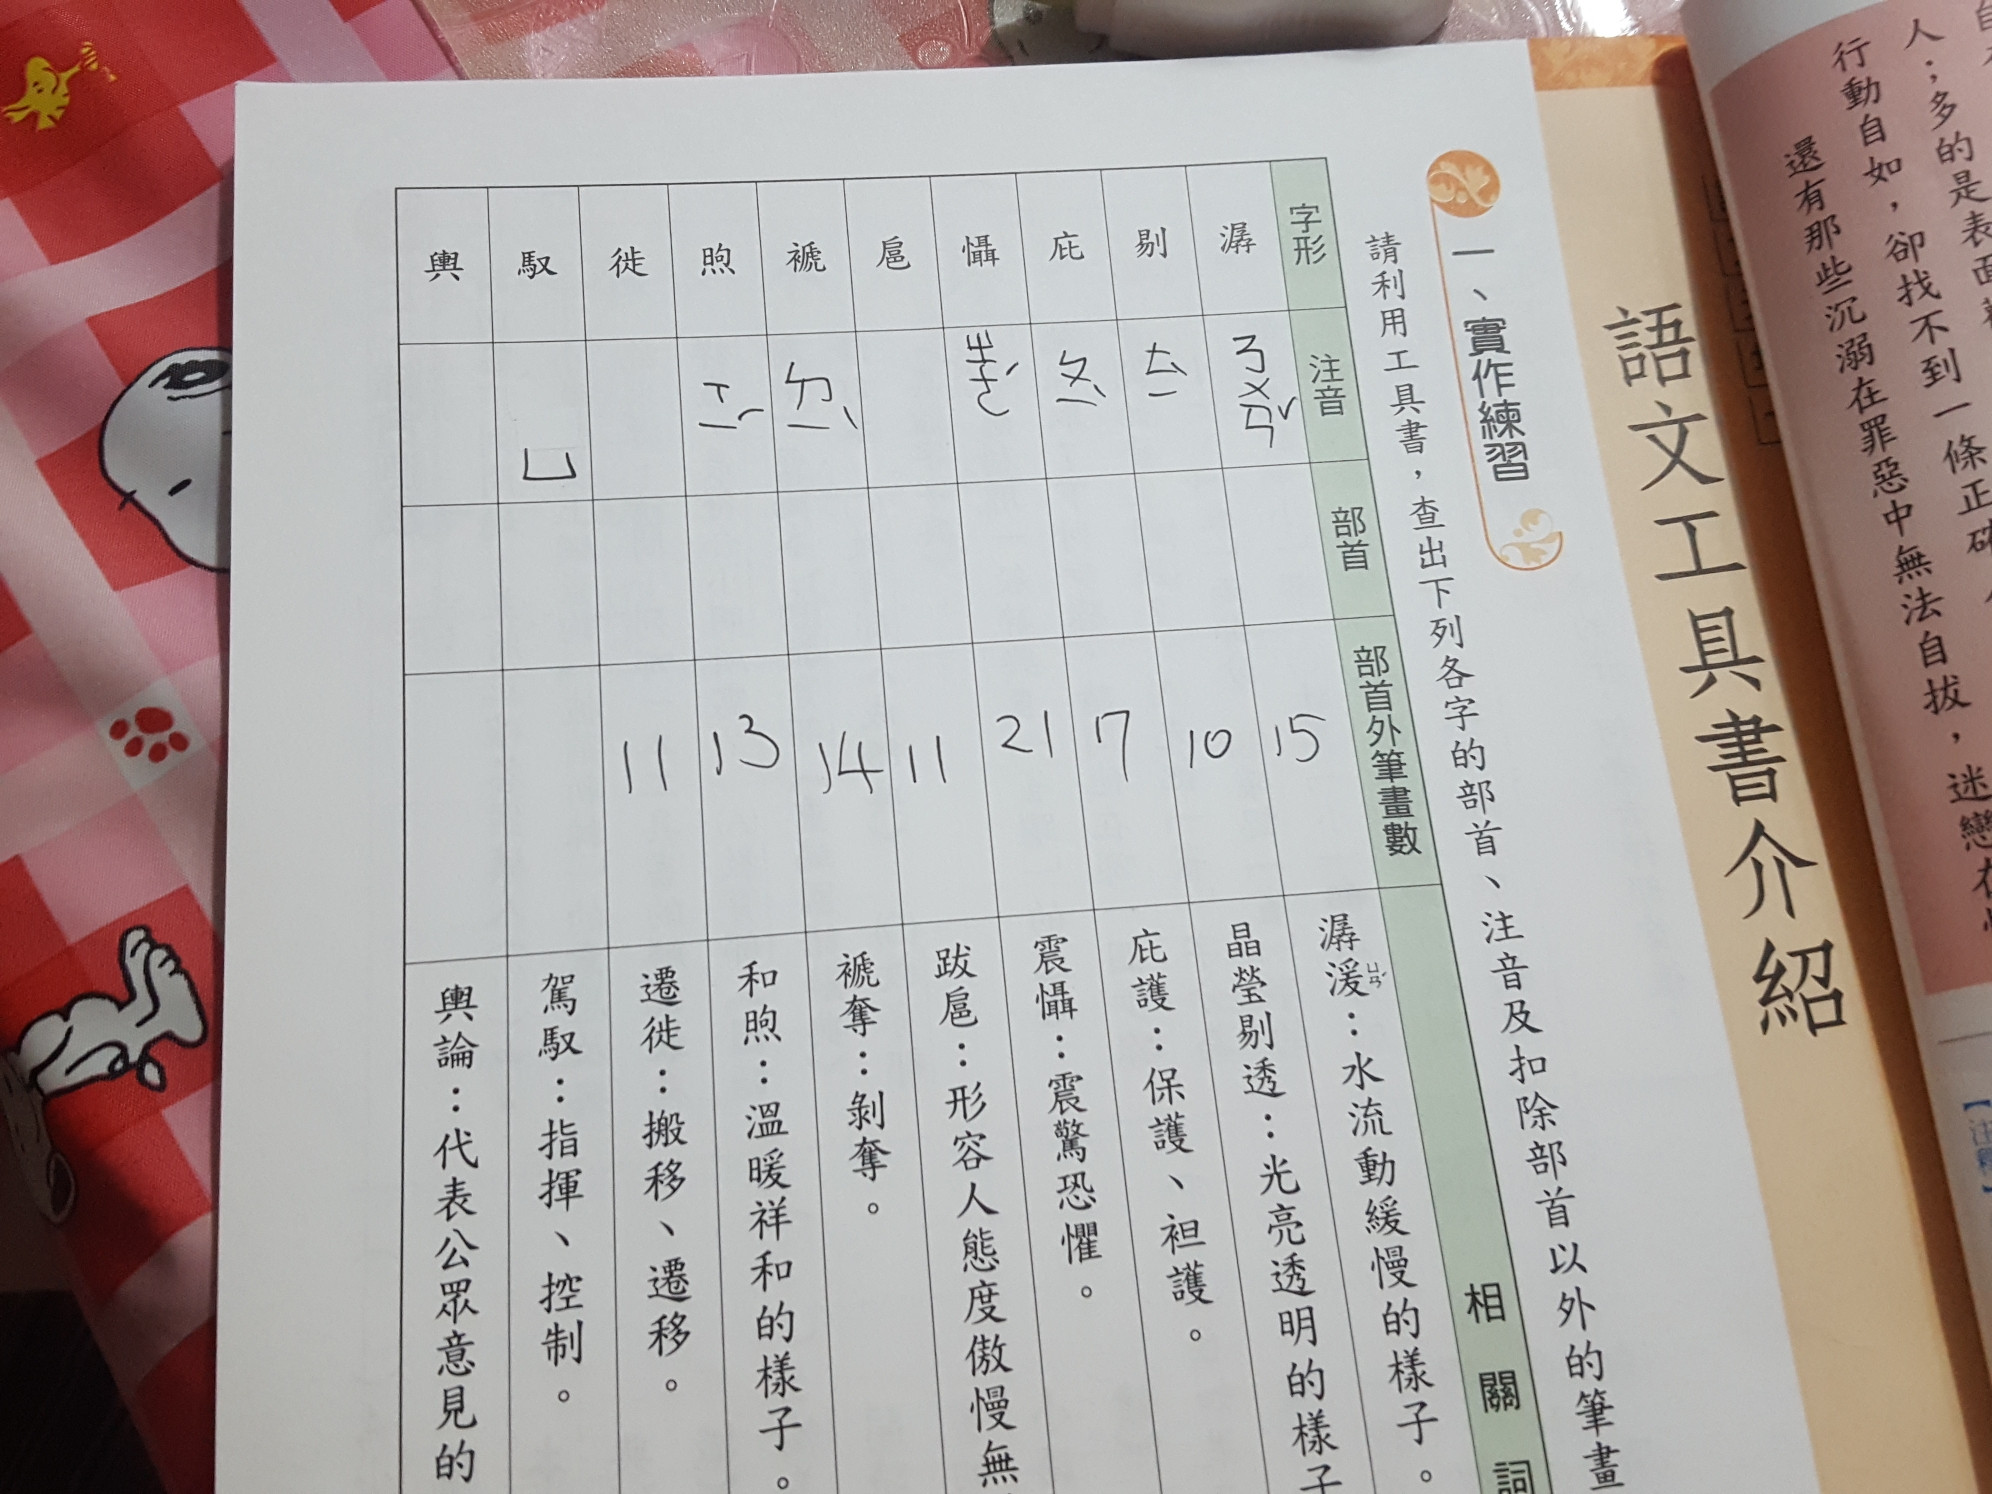 行動自如，卻找不到一條正確
還有那些沉溺在罪惡中無法自拔，迷戀在
語文工具書介紹
一、實作練習
請利用工具書，查出下列各字的部首、注音及扣除部首以外的筆畫
字形 注音 部首 部首外筆畫數 相關詞
潺 ㄔㄨㄢˇ 15 潺湲ㄩㄢˊ：水流動緩慢的樣子。
剔 ㄊㄧˋ 10 晶瑩剔透：光亮透明的樣子
庇 ㄆㄧˋ 17 庇護：保護、袒護。
懾 ㄓㄜˊ 21 震懾：震驚恐懼。
扈 11 跋扈：形容人態度傲慢無
褫 ㄉㄧˋ 14 褫奪：剝奪。
煦 ㄒㄧˇ 13 和煦：溫暖祥和的樣子。
徙 11 遷徙：搬移、遷移。
馭 ㄩ 駕馭：指揮、控制。
輿 輿論：代表公眾意見的